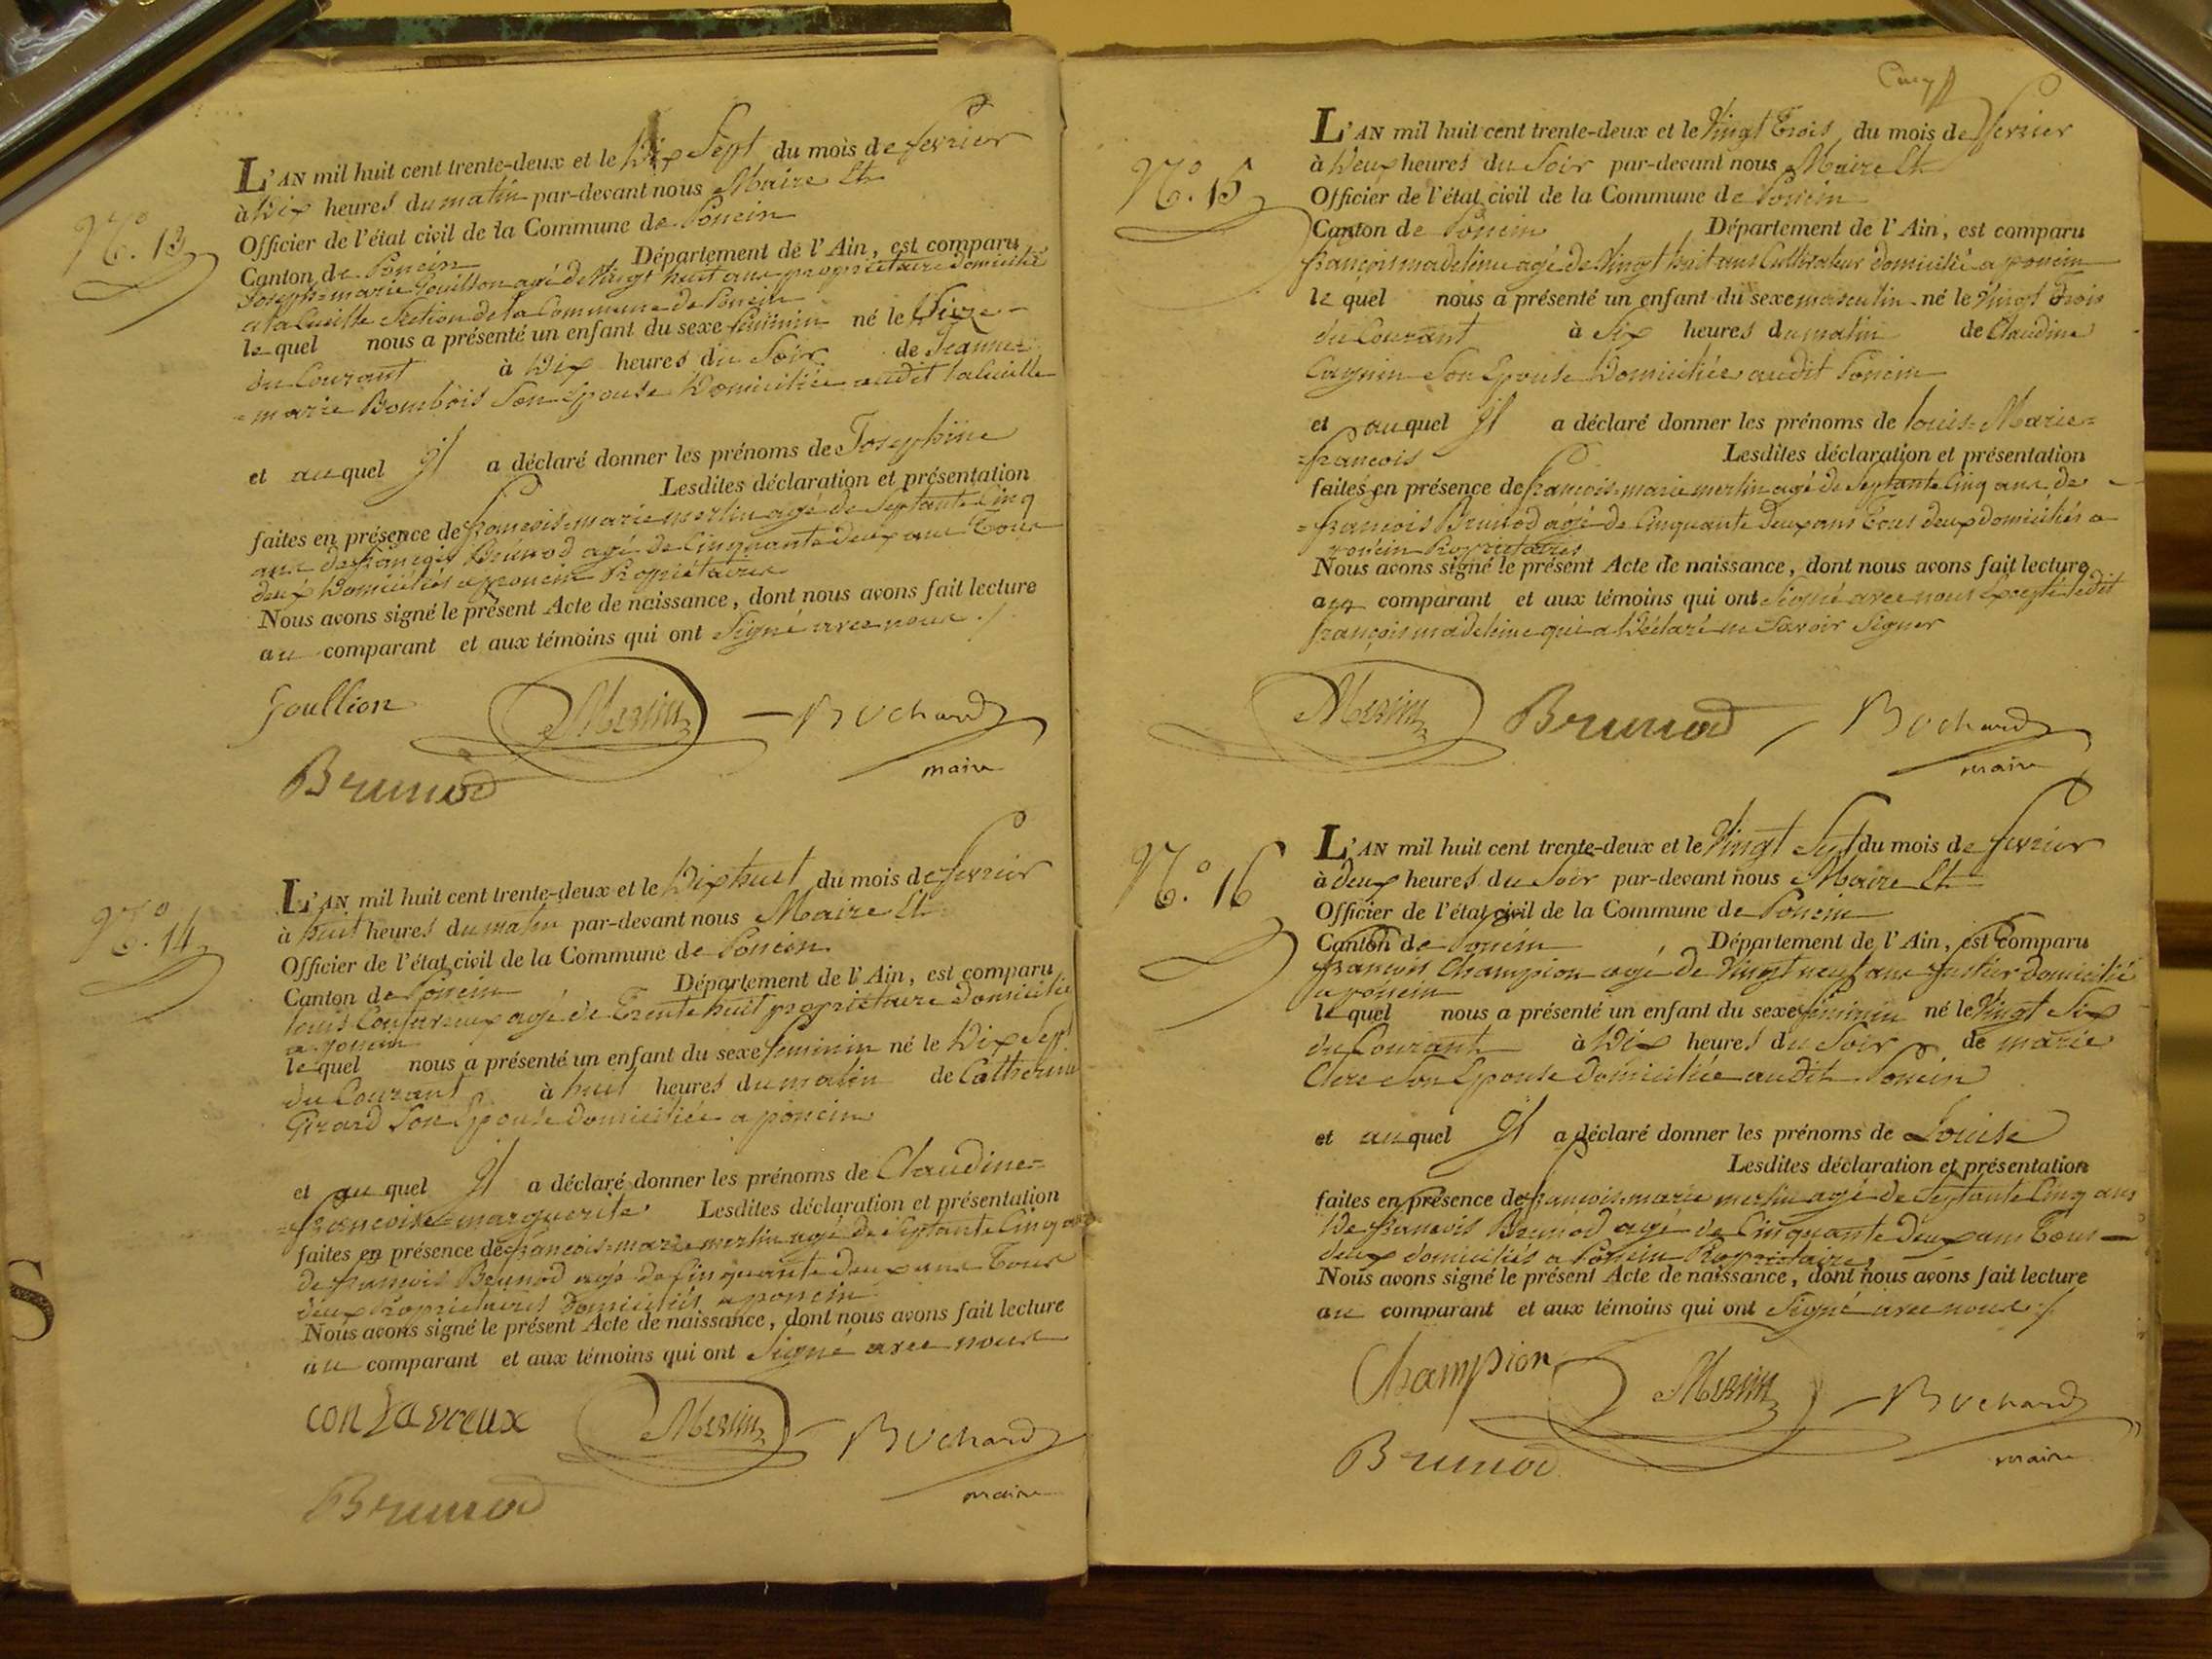 N.° 13
L'AN mil huit cent trente-deux et le Dix Sept du mois de fevrier
à Dix heures du matin par-devant nous Maire Et
Officier de l'état civil de la Commune de Poncin
Canton de Poncin Département de l'Ain, est comparu
Joseph=marie Goullion agé de Vingt huit ans propriétaire domicilié
a la Cueille Section de la Commune de Poncin
le quel nous a présenté un enfant du sexe feminin né le
du Courant à Dix heures du Soir de Jeanne=
=marie Bombois Son Epouse Domiciliée audit laCueille
et au quel Il a déclaré donner les prénoms de Josephine
Lesdites déclaration et présentation
faites en présence de francois=marie merlin agé de Septante Cinq
ans de françois Brunod agé de Cinquante deux ans Tous
deux Domiciliés a poncin Propriétaires
Nous avons signé le présent Acte de naissance, dont nous avons fait lecture
au comparant et aux témoins qui ont Signé avec nous ./
Goullion Merlin Buchard
Brunod maire
N.° 14
L'AN mil huit cent trente-deux et le Dix huit du mois de fevrier
à huit heures du matin par-devant nous Maire Et
Officier de l'état civil de la Commune de Poncin
Canton de Poncin Département de l'Ain, est comparu
louis Contaveux agé de Trente huit propriétaire domicilié
a poncin
le quel nous a présenté un enfant du sexe feminin né le Dix Sept
du Courant à huit heures du matin de Catherine
Girard Son Epouse domiciliée a poncin
et au quel Il a déclaré donner les prénoms de Claudine=
=francoise=marguerite Lesdites déclaration et présentation
faites en présence de francois=marie merlin agé de Septante Cinq ans
de francois Brunod agé de Cinquante deux ans Tous
deux Propriétaires Domiciliés a poncin
Nous avons signé le présent Acte de naissance, dont nous avons fait lecture
au comparant et aux témoins qui ont Signé avec nous
contaveux Merlin Buchard
Brunod maire
N.° 15
L'AN mil huit cent trente-deux et le Vingt Trois du mois de fevrier
à Deux heures du Soir par-devant nous Maire Et
Officier de l'état civil de la Commune de Poncin
Canton de Poncin Département de l'Ain, est comparu
françois madeleine agé de Vingt huit ans Cultivateur domicilié a poncin
le quel nous a présenté un enfant du sexe masculin né le Vingt Trois
du Courant à Six heures du matin de Claudine
Cagnin Son Epouse Domiciliée audit Poncin
et au quel Il a déclaré donner les prénoms de louis=Marie=
=francois Lesdites déclaration et présentation
faites en présence de francois=marie merlin agé de Septante Cinq ans de
=francois Brunod agé de Cinquante deux ans Tous deux domiciliés a
poncin Propriétaires
Nous avons signé le présent Acte de naissance, dont nous avons fait lecture
au comparant et aux témoins qui ont Signé avec nous Excepté ledit
françois madeleine qui a Déclaré ne Savoir Signer
Merlin Brunod Buchard
maire
N.° 16
L'AN mil huit cent trente-deux et le Vingt Sept du mois de fevrier
à deux heures du Soir par-devant nous Maire Et
Officier de l'état civil de la Commune de Poncin
Canton de Poncin Département de l'Ain, est comparu
francois Champion agé de Vingt neuf ans domicilié
a poncin
le quel nous a présenté un enfant du sexe feminin né le Vingt Six
du Courant à Dix heures du Soir de marie
Clerc Son Epouse domiciliée audit Poncin
et au quel Il a déclaré donner les prénoms de Louise
Lesdites déclaration et présentation
faites en présence de francois=marie merlin agé de Septante Cinq ans
De francois Brunod agé de Cinquante deux ans Tous
deux domiciliés a Poncin Propriétaires
Nous avons signé le présent Acte de naissance, dont nous avons fait lecture
au comparant et aux témoins qui ont Signé avec nous ./
Champion Merlin Buchard
Brunod maire